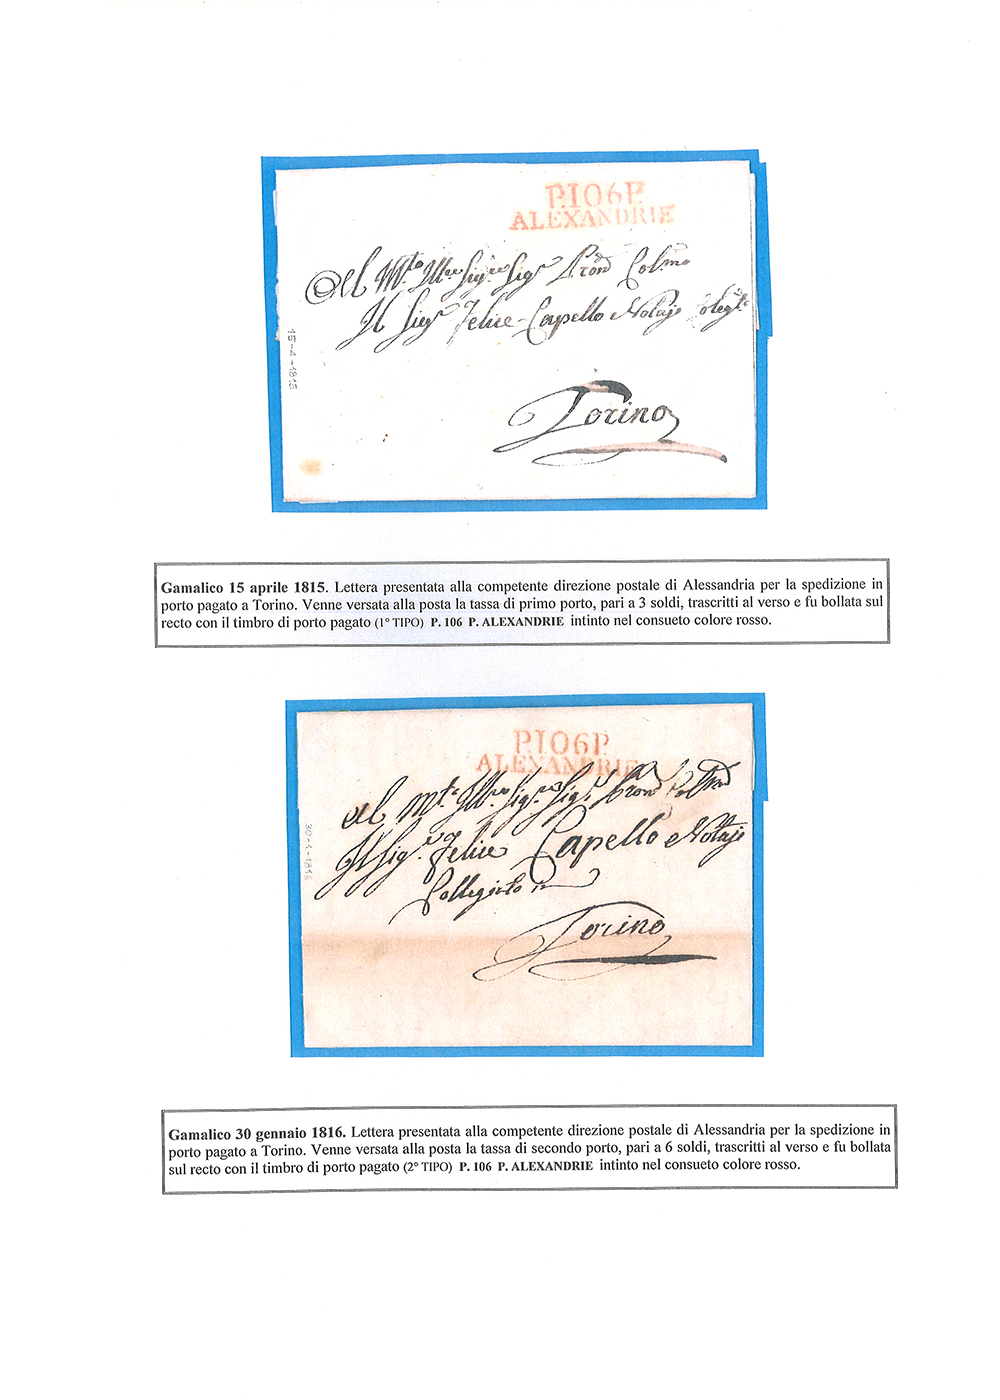 P.106P.
ALEXANDRIE
Al M.to Ill.re Sig.re Sig.r Pron Col.mo
Il Sig.r Felice Capello Notajo Coleg.to
Torino
15-4-1815
Gamalico 15 aprile 1815. Lettera presentata alla competente direzione postale di Alessandria per la spedizione in
porto pagato a Torino. Venne versata alla posta la tassa di primo porto, pari a 3 soldi, trascritti al verso e fu bollata sul
recto con il timbro di porto pagato (1° TIPO) P. 106 P. ALEXANDRIE intinto nel consueto colore rosso.
P.106P.
ALEXANDRIE
Al M.to Ill.re Sig.re Sig.r Pron Col.mo
Il Sig.r Felice Capello Nottajo
Collegiato in
Torino
30-1-1816
Gamalico 30 gennaio 1816. Lettera presentata alla competente direzione postale di Alessandria per la spedizione in
porto pagato a Torino. Venne versata alla posta la tassa di secondo porto, pari a 6 soldi, trascritti al verso e fu bollata
sul recto con il timbro di porto pagato (2° TIPO) P. 106 P. ALEXANDRIE intinto nel consueto colore rosso.